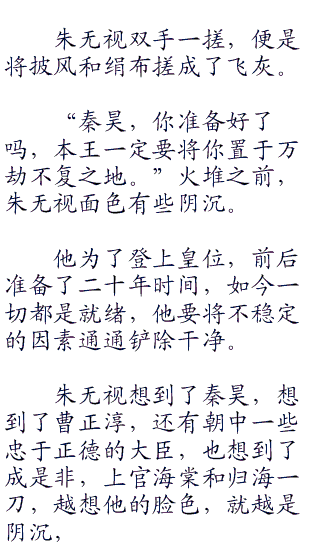 朱无视双手一搓，便是
将披风和绢布搓成了飞灰。
“秦昊，你准备好了
吗，本王一定要将你置于万
劫不复之地。”火堆之前，
朱无视面色有些阴沉。
他为了登上皇位，前后
准备了二十年时间，如今一
切都是就绪，他要将不稳定
的因素通通铲除干净。
朱无视想到了秦昊，想
到了曹正淳，还有朝中一些
忠于正德的大臣，也想到了
成是非，上官海棠和归海一
刀，越想他的脸色，就越是
阴沉，